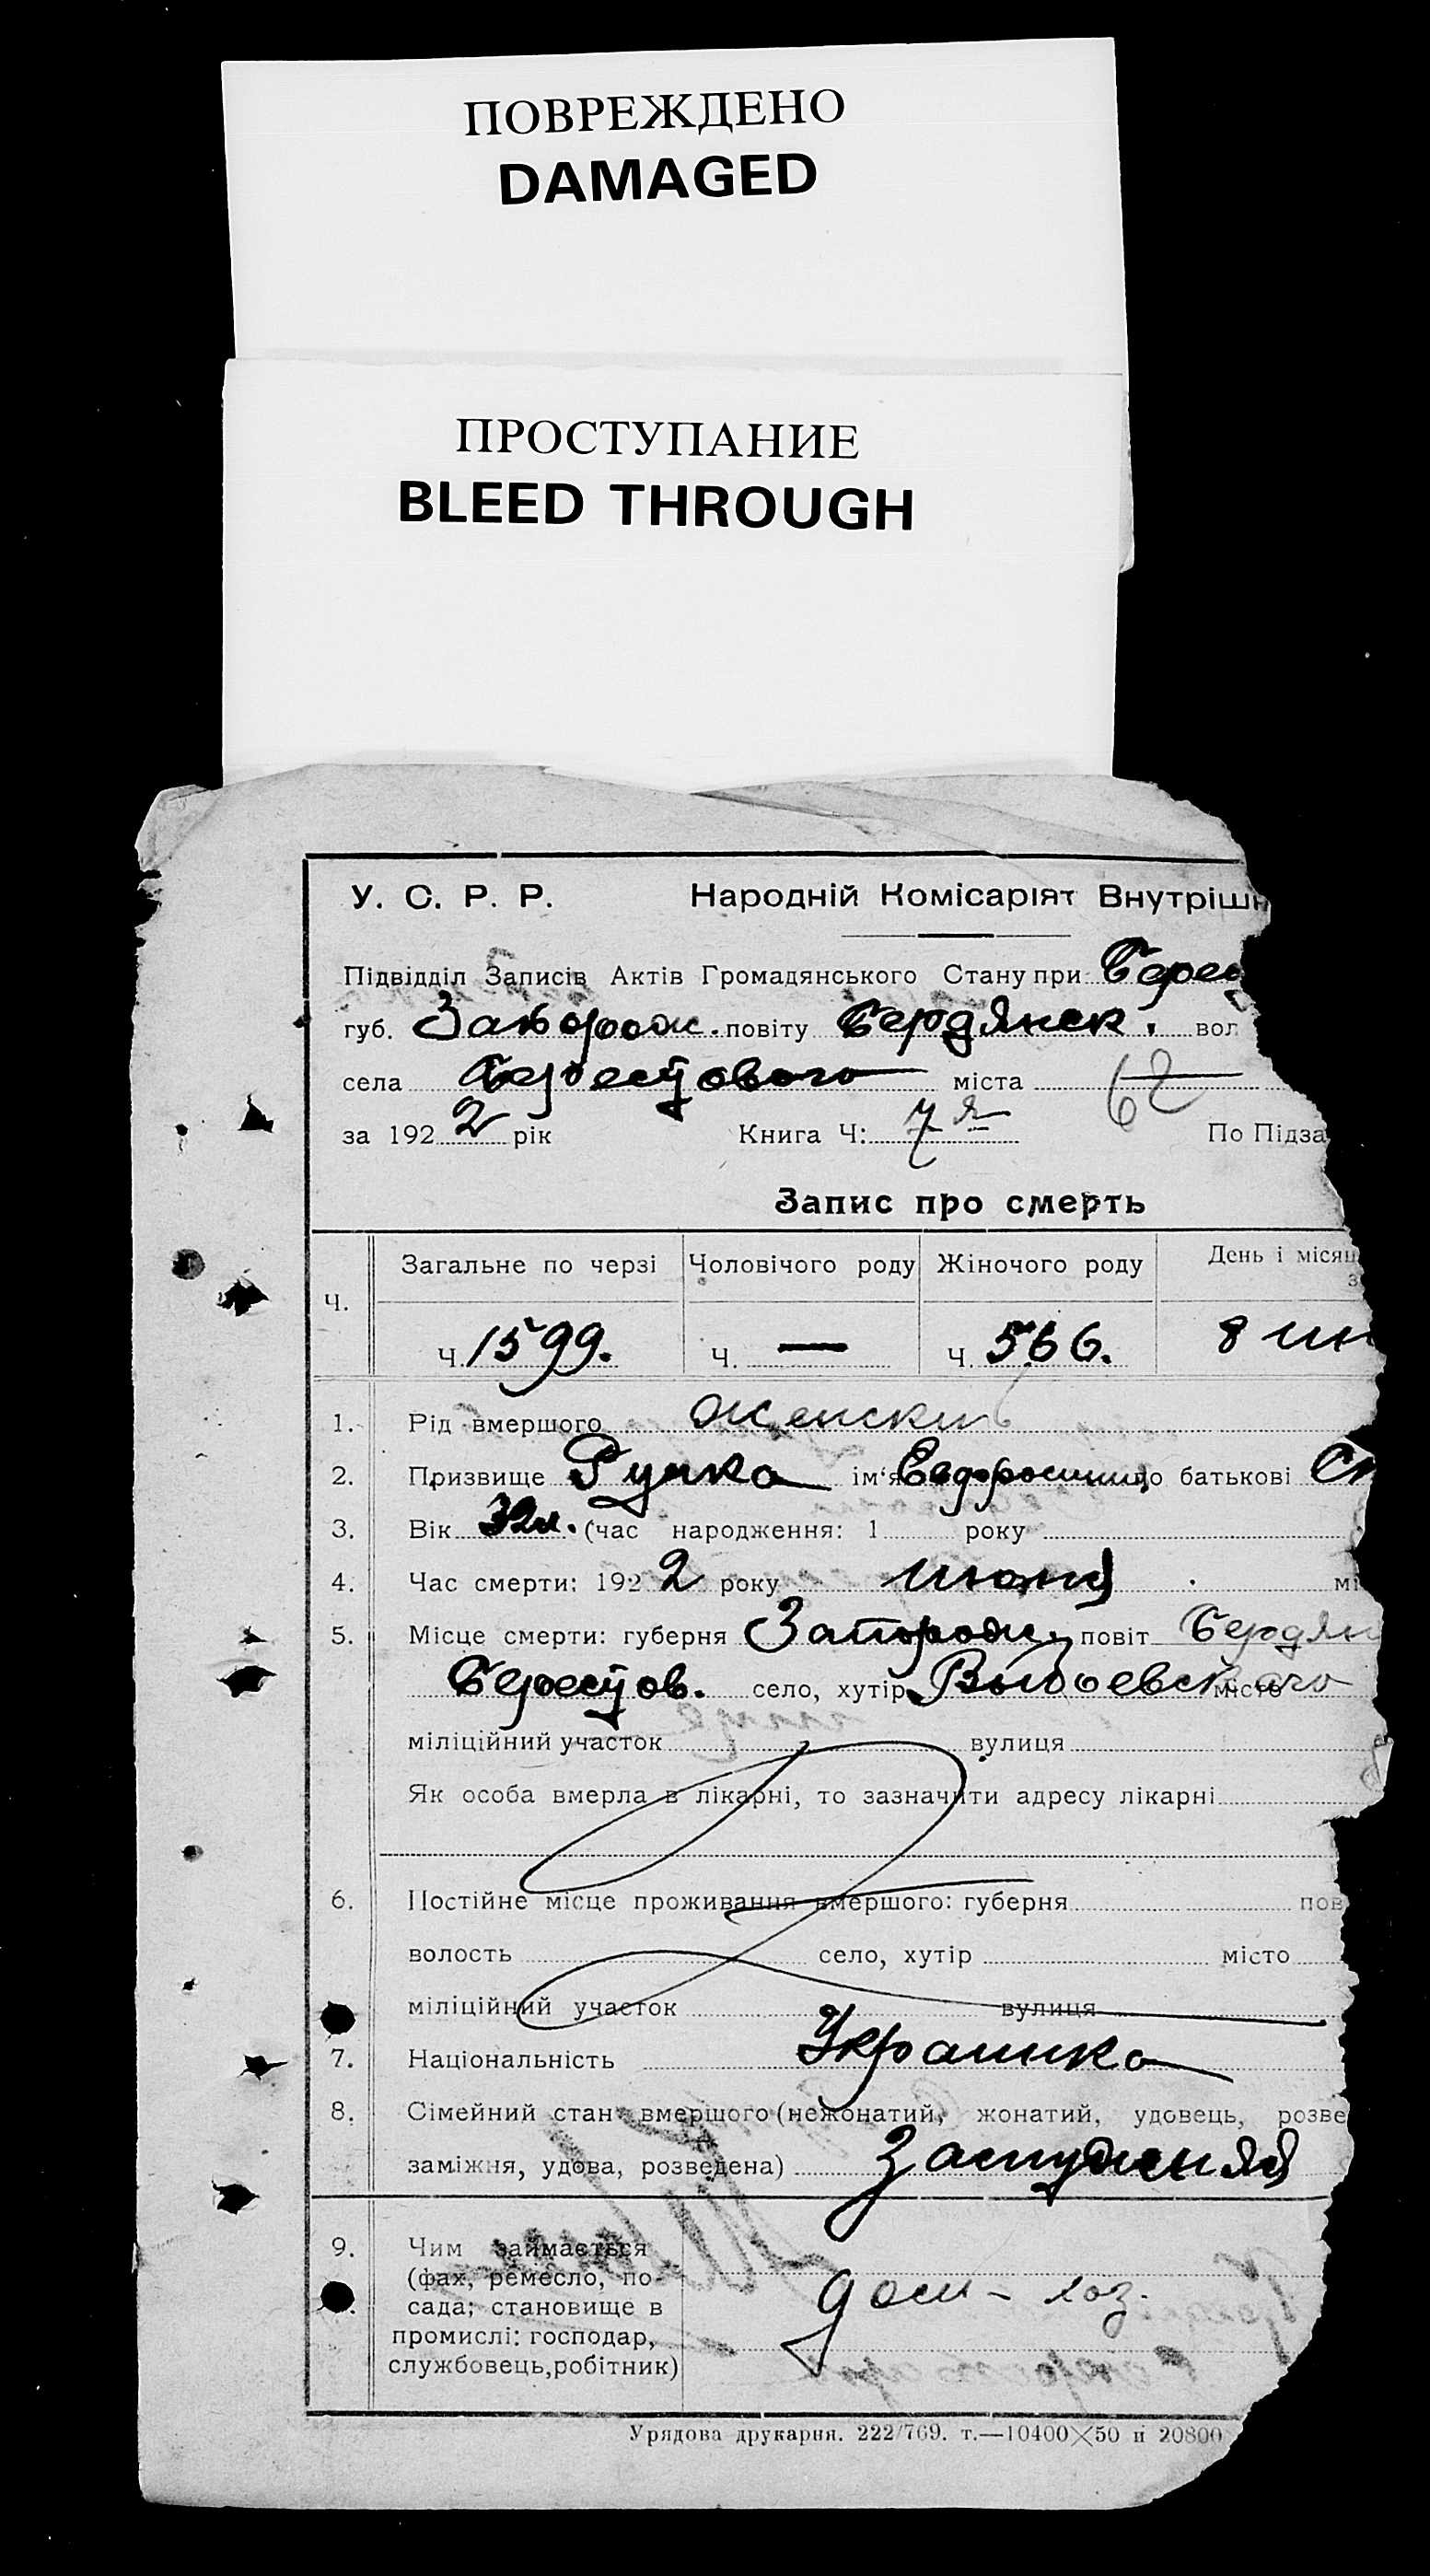 ПОВРЕЖДЕНО
DAMAGED
ПРОСТУПАНИЕ
BLEED THROUGH
У. С. Р. Р. Народній Комісаріят Внутрішн
Підвідділ Записів Актів Громадянського Стану при Берес
губ. Запорож. повіту Бердянск. вол
села Берестового міста
за 1922 рік Книга Ч: 7я По Підза
62
Запис про смерть
Ч. Загальне по черзі Чоловічого роду Жіночого роду День і місяц
Ч. 1599. Ч. — Ч. 566. 8 ию
1. Рід вмершого женский
2. Призвище Гучка ім'я по батькові
3. Вік 32л. (час народження: 1 року
4. Час смерти: 1922 року июня мі
5. Місце смерти: губерня Запорож. повіт Бердян
Берестов. село, хутір місто
міліційний участок вулиця
Як особа вмерла в лікарні, то зазначити адресу лікарні
6. Постійне місце проживання вмершого: губерня пов
волость село, хутір місто
міліційний участок вулиця
7. Національність Украинка
8. Сімейний стан вмершого (нежонатий, жонатий, удовець, розве
заміжня, удова, розведена) Замужняя
9. Чим займається
(фах, ремесло, по-
сада; становище в
промислі: господар,
службовець, робітник)
дом-хоз.
Урядова друкарня. 222/769. т.—10400×50 й 20800